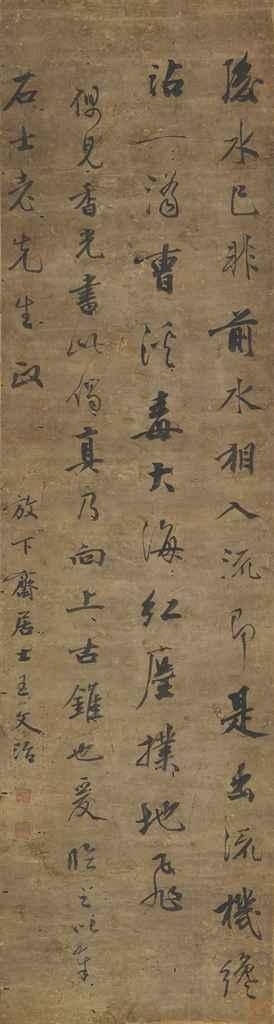 後水已非前水相入流即是出流機纔
沾一滴曹溪毒大海紅塵撲地飛
偶見香光書此偈真乃向上古錐也爰臨之以奉
石士老先生政
放下齋居士王文治